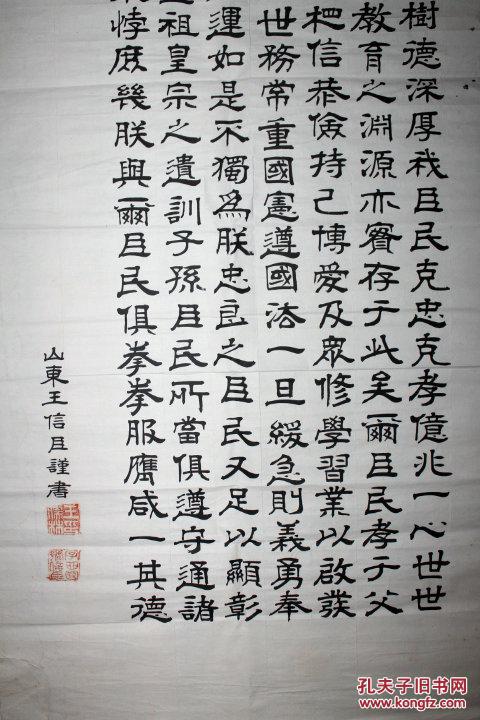 樹德深厚我臣民克忠克孝億兆一心世世
教育之淵源亦實存于此矣爾臣民孝于父
相信恭儉持己博愛及眾修學習業以啟發
世務常重國憲遵國法一旦緩急則義勇奉
運如是不獨為朕忠良之臣民又足以顯彰
祖皇宗之遺訓子孫臣民所當俱遵守通諸
悖庶幾朕與爾臣民俱拳拳服膺咸一其德
山東王信臣謹書
孔夫子旧书网
www.kongfz.com